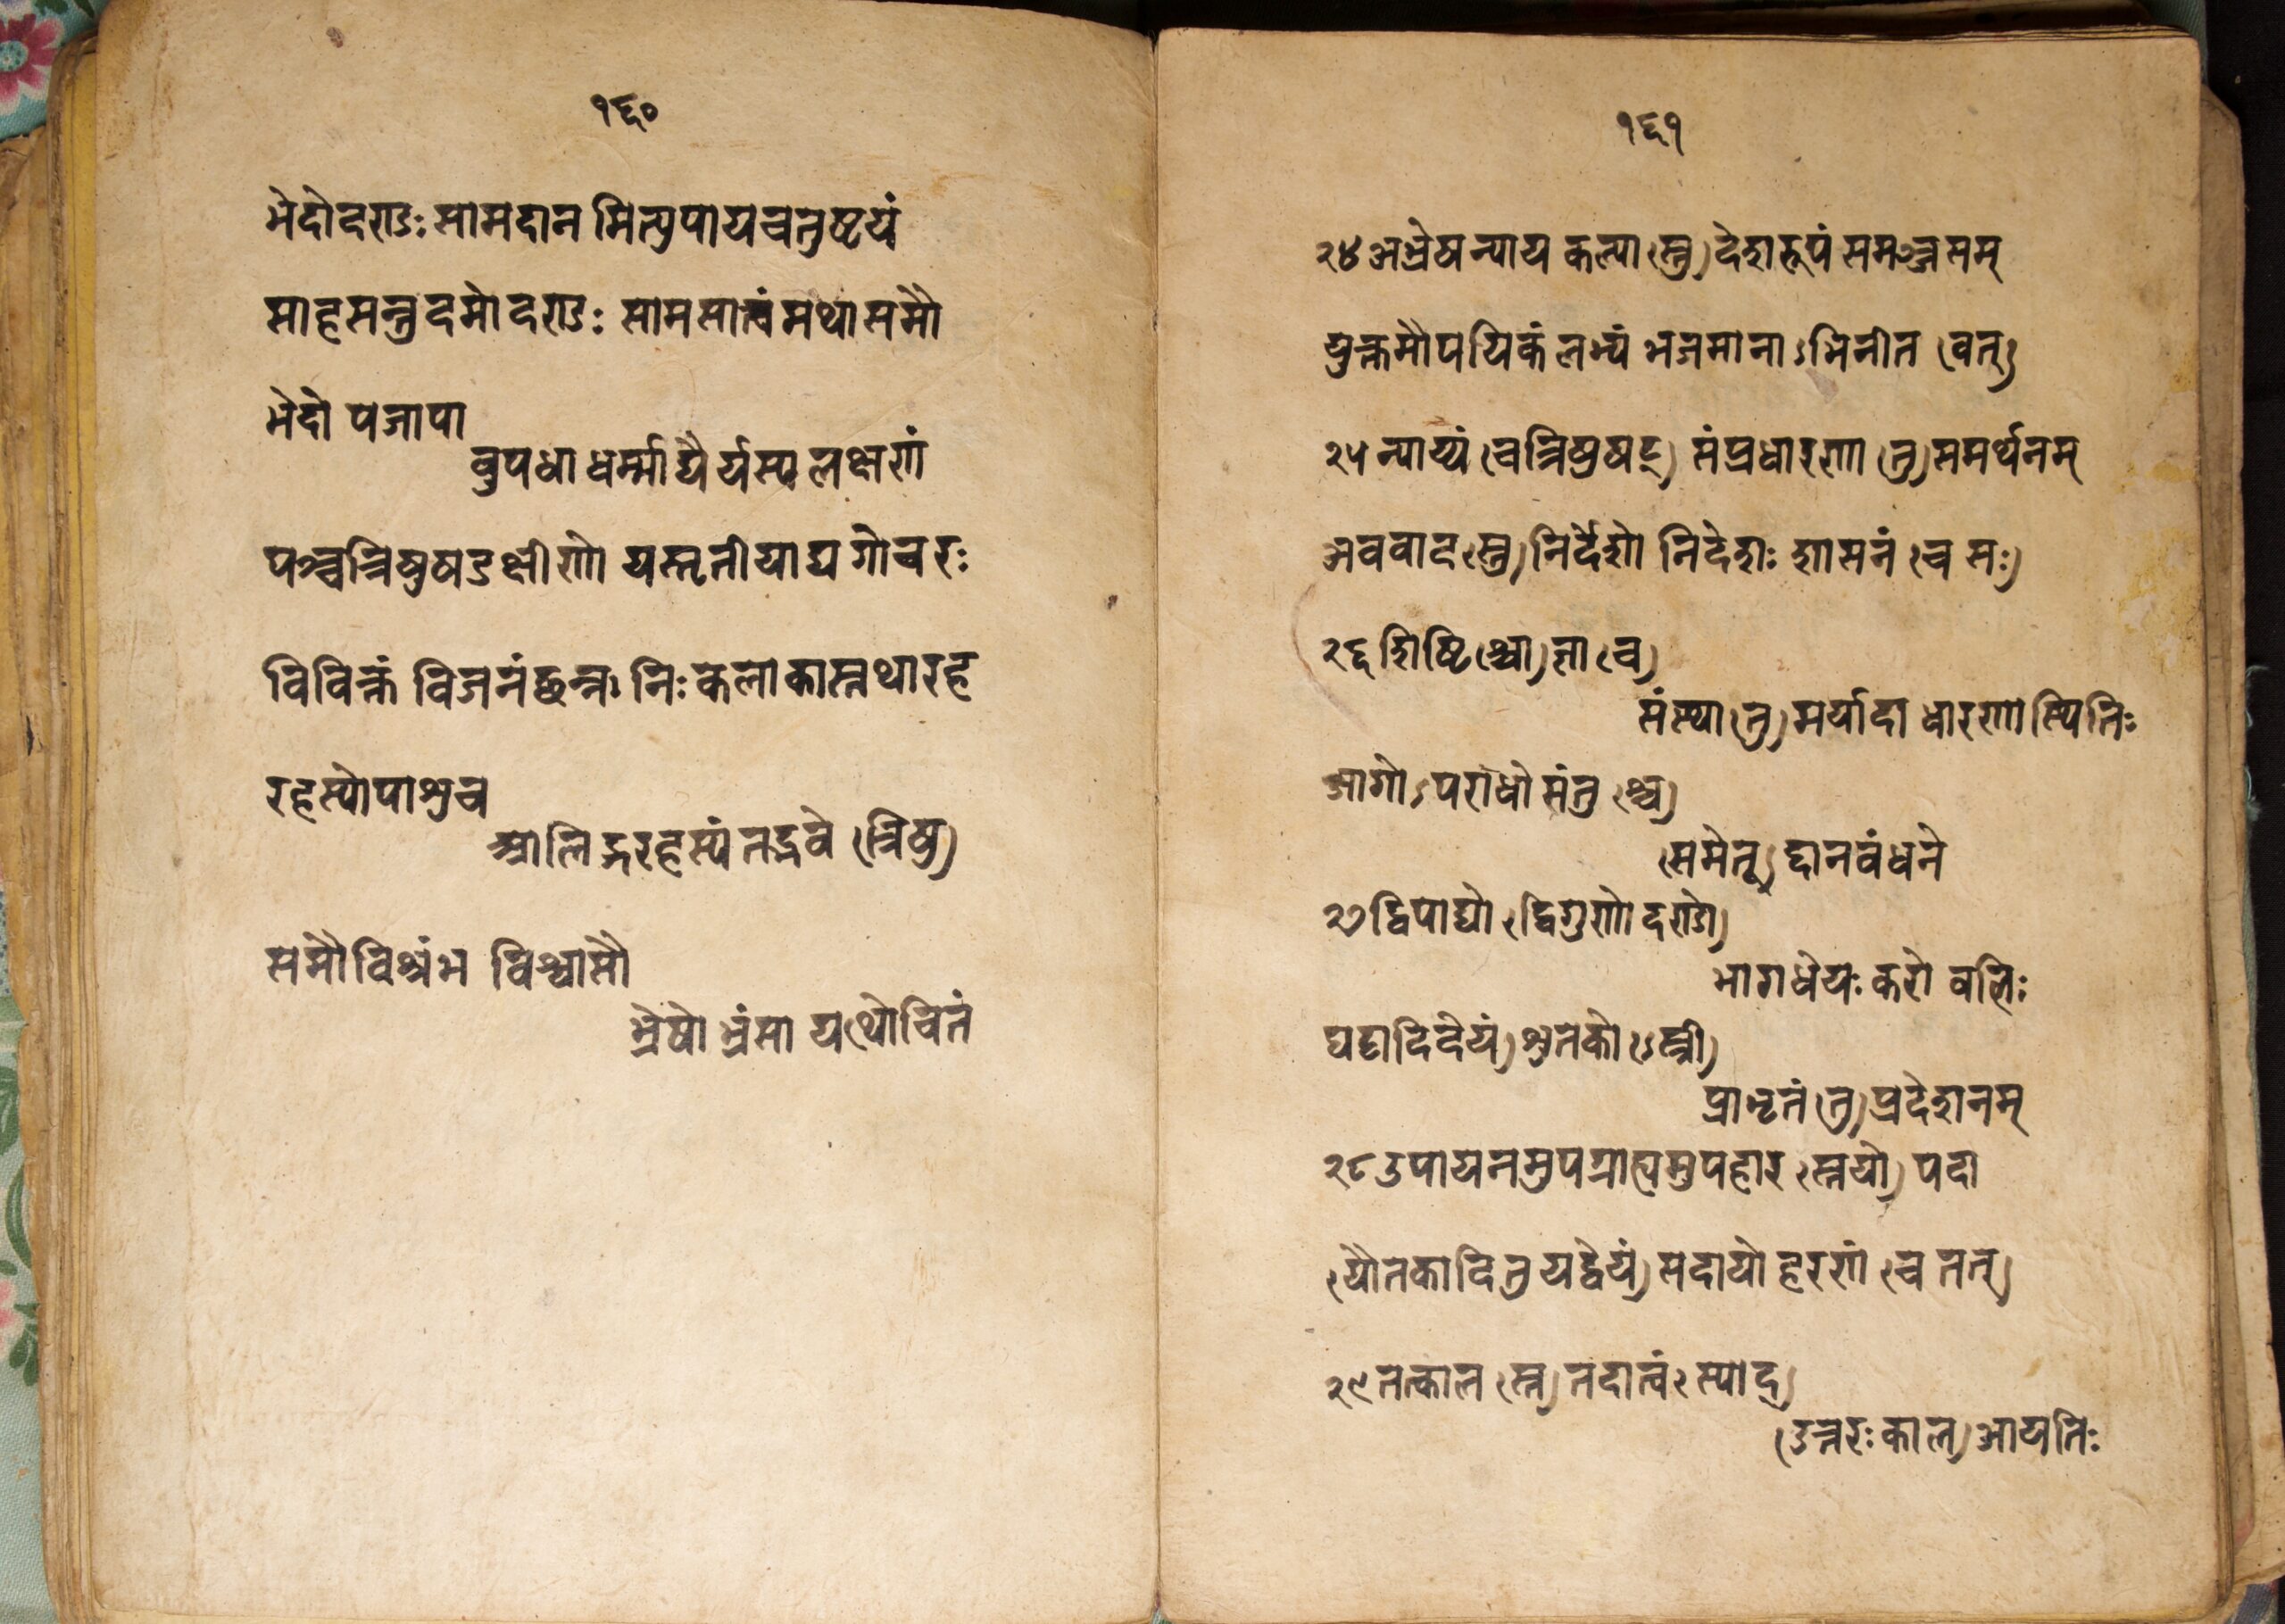 १६०
भेदोदराडः सामदान मित्युपायचतुष्टयं
साहसन्तुदमोदराडः सामसात्वंमथासमौ
भेदो पजापा
वुपधा धर्म्माद्यैर्यस्प लक्षराां
पञ्चत्रिषुषडक्षीरााो यस्तृतीयाद्य गोचरः
विविक्तं विजनंछन्न निः कलोकास्तथा रह
रहस्योपाशुच
आलिङ्गरहस्यं तद्भवे (त्रिषु)
समौविश्रंभ विश्वासौ
भ्रेषो भ्रंसा यथोचितं
१६१
२४ अभ्रेषन्याय कल्पा (स्तु) देशरूपं समञ्जसम्
युक्तमौपयिकं लभ्यं भजमाना ऽभिनीत (वत्)
२५ न्याय्यं (चत्रिषुषट्) संप्रधारराा (तु) समर्थनम्
अववाद (स्तु) निर्देशो निदेशः शासनं (च सः)
२६ शिष्टि (श्चा) ज्ञा (च)
संस्था (तु) मर्यादा धारराा स्थितिः
आगोऽपराधो संतु (श्च)
(समेतू) द्दानवंधने
२७ द्विपाद्यो (द्विगुरााो दराडो)
भागधेयः करो वलिः
घट्टादिदेयं) शुतको (ऽस्त्री)
प्राभृतं (तु) प्रदेशनम्
२८ उपायनमुपग्राह्यमुपहार (स्तयो) पदा
(यौतकादितु यद्देयं) सदायो हरराां (च तत्)
२९ तत्काल (स्त) तदात्वं (स्याद्)
(उत्तरः काल) आयतिः